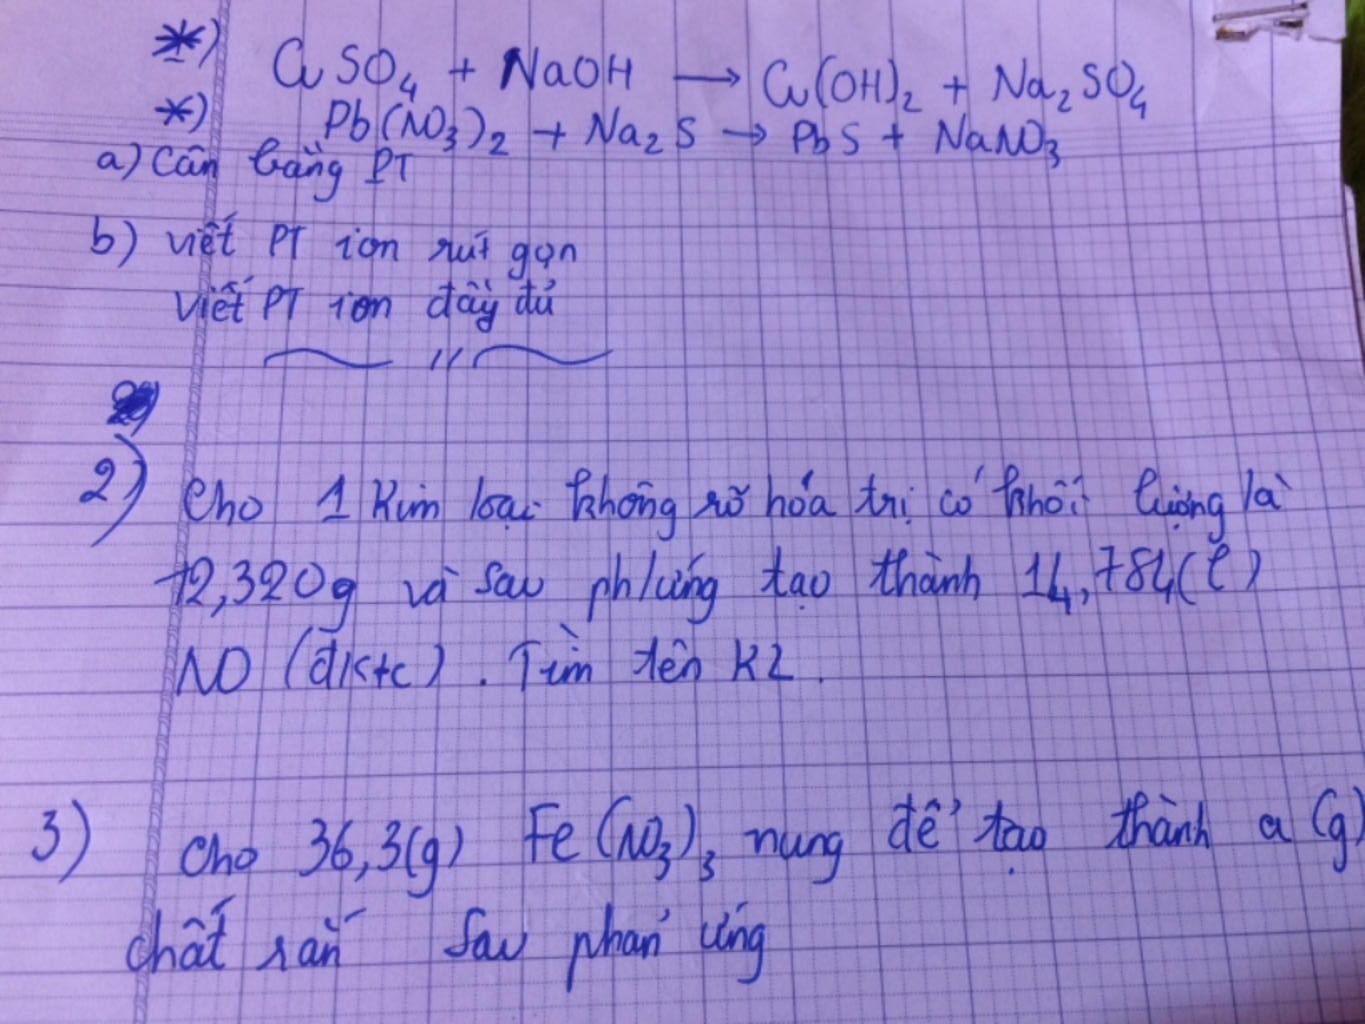 *) CuSO4 + NaOH → Cu(OH)2 + Na2SO4
*) Pb(NO3)2 + Na2S → PbS + NaNO3
a) Cân bằng PT
b) viết PT ion rút gọn
viết PT ion đầy đủ
2) Cho 1 Kim loại không rõ hóa trị có khối lượng là
12,320g và sau ph/ứng tạo thành 14,784(l)
NO (đktc). Tìm tên KL.
3) Cho 36,3(g) Fe(NO3)3 nung để tạo thành a (g)
chất rắn sau phản ứng